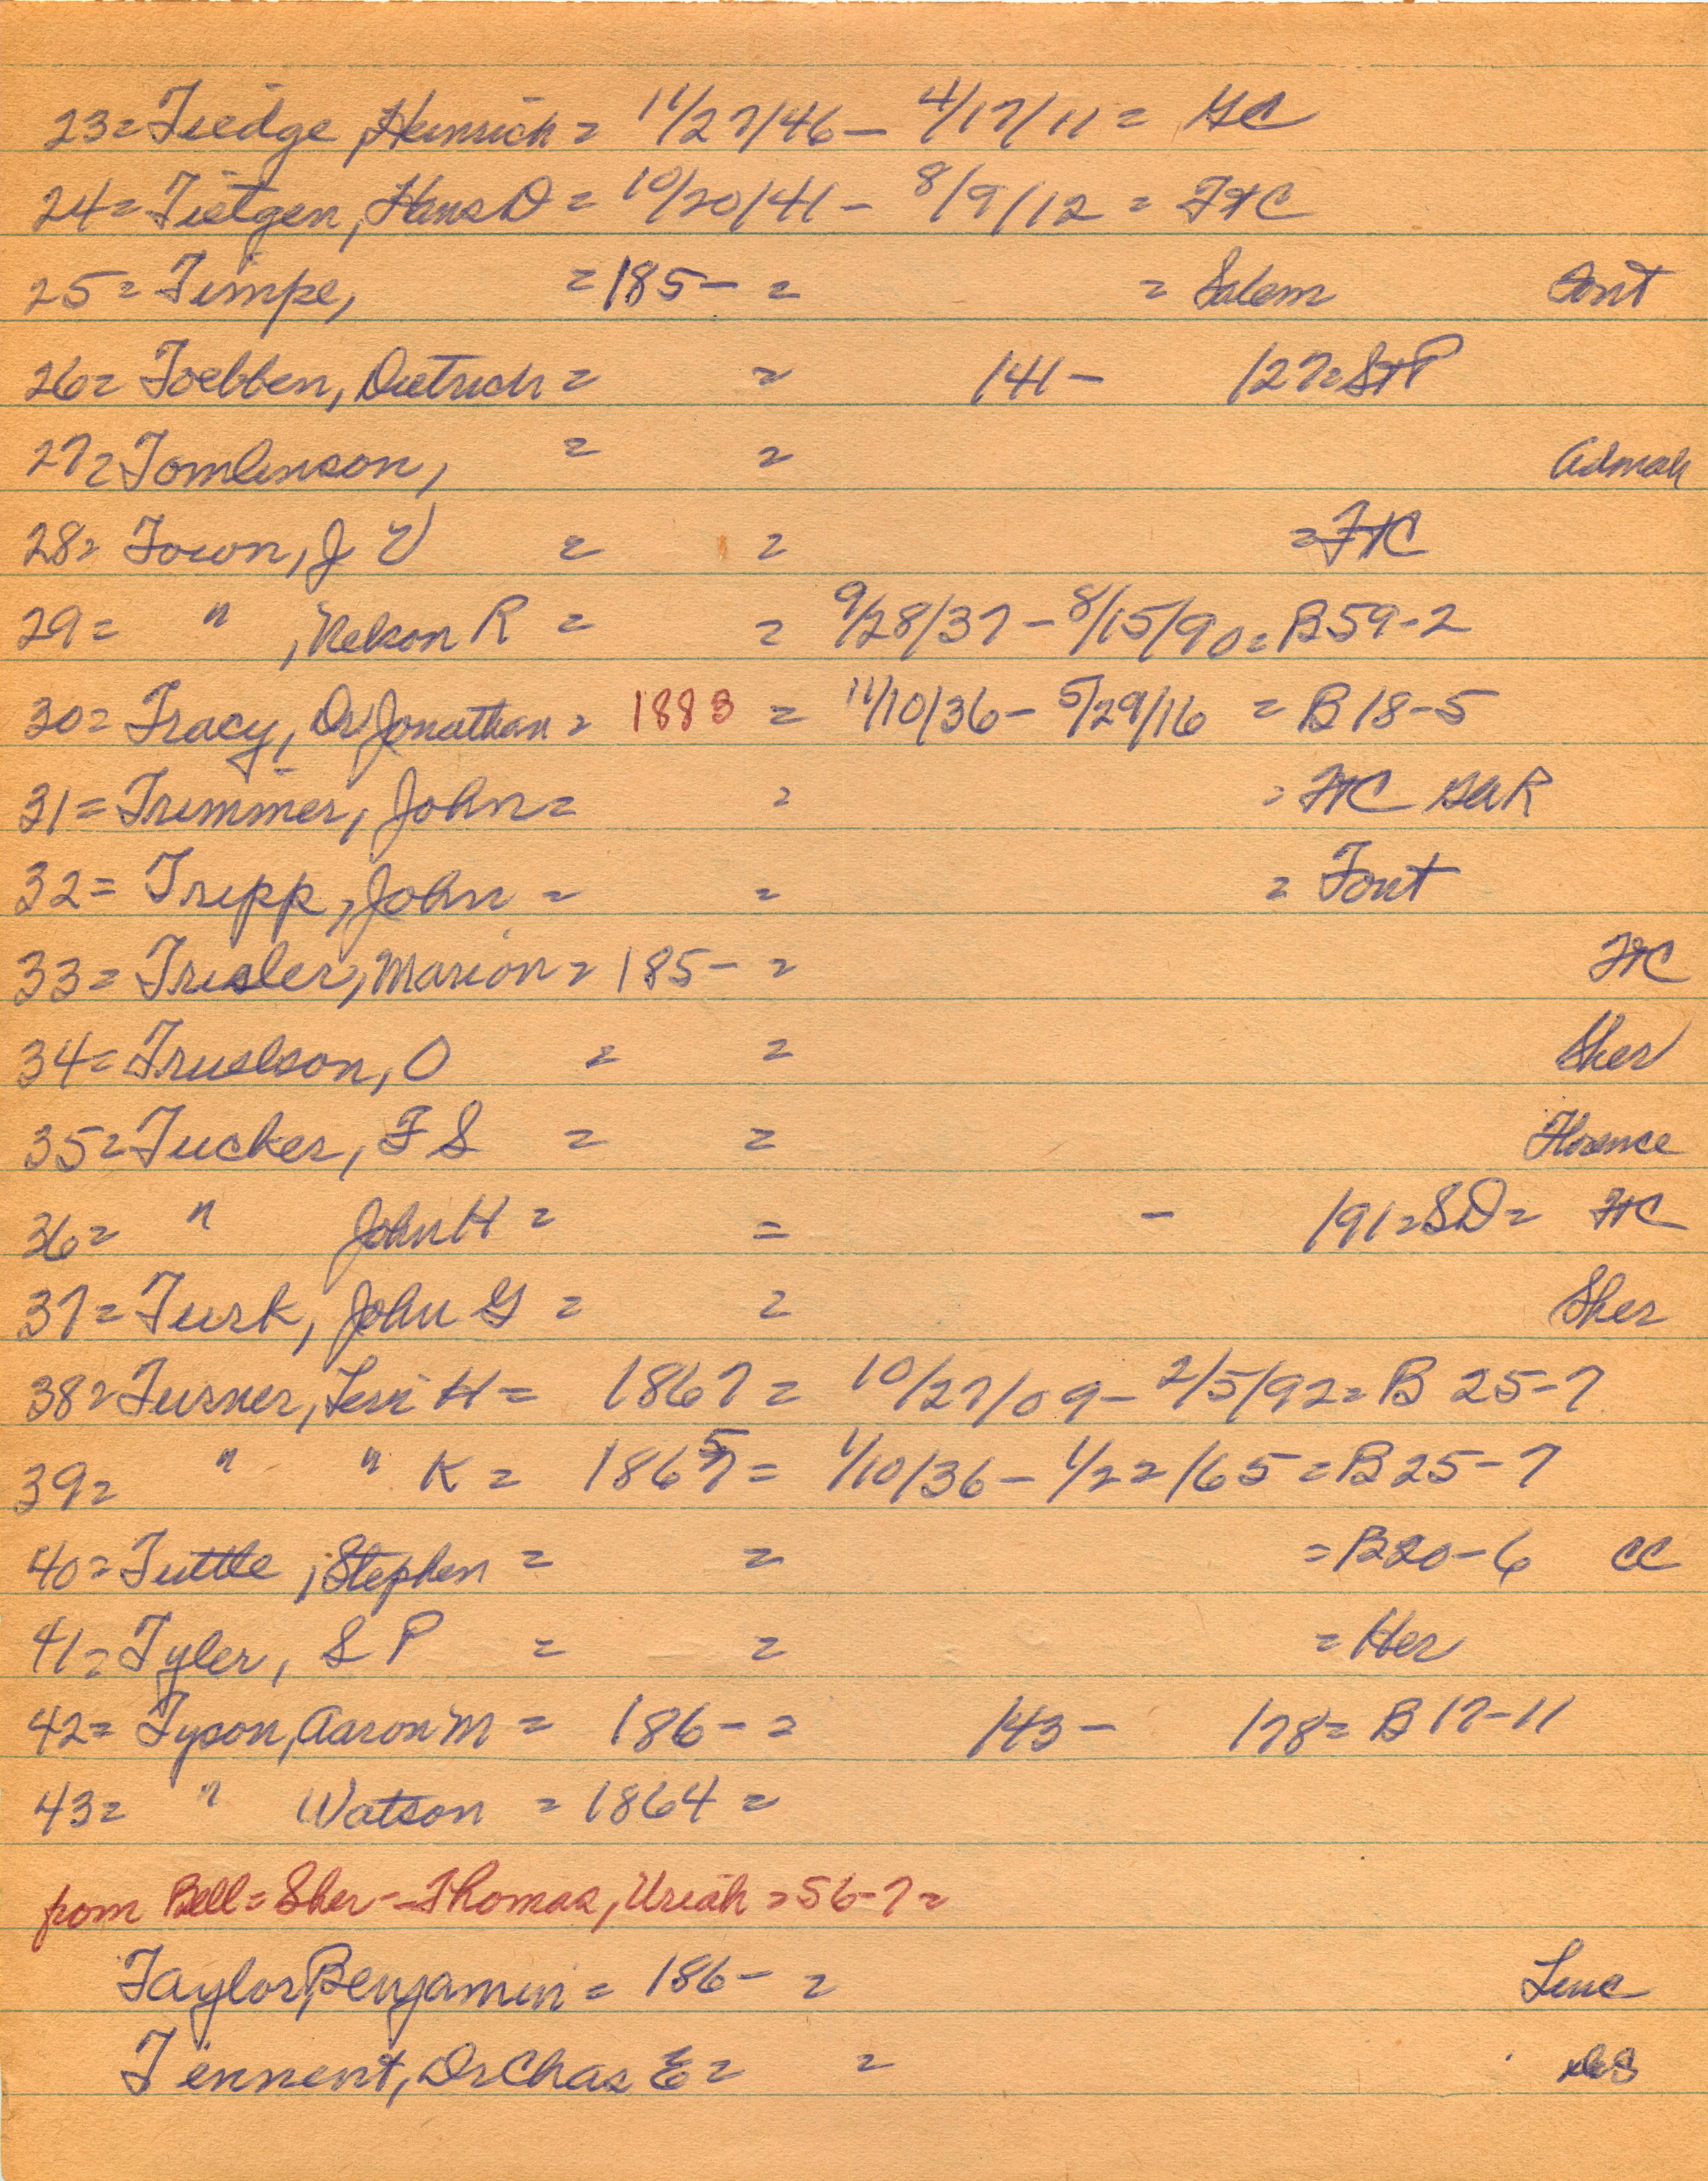 23= Tiedge, Heinrich = 11/27/46 - 4/17/11 = GC
24= Tietgen, Hans D = 10/20/41 - 8/9/12 = FtC
25= Timpe, = 185- = = Salem Font
26= Toebben, Dietrich = = 141- 127= StP
27= Tomlinson, = = Admah
28= Town, J V = = = FtC
29= " , Nelson R = = 9/28/37 - 8/15/90 = B59-2
30= Tracy, Dr Jonathan = 1883 = 11/10/36 - 5/29/16 = B 18-5
31= Trimmer, John = = = FtC GAR
32= Tripp, John = = = Font
33= Trisler, Marion = 185- = FtC
34= Truelson, O = = Sher
35= Tucker, F S = = Florence
36= " John H = = - 191= SD = FtC
37= Turk, John G = = Sher
38= Turner, Levi H = 1867 = 10/27/09 - 2/5/92 = B 25-7
39= " " K = 1865 = 1/10/36 - 1/22/65 = B 25-7
40= Tuttle, Stephen = = = B20-6 CC
41= Tyler, S P = = = Her
42= Tyson, Aaron M = 186- = 143- 178= B 17-11
43= " Watson = 1864 =
from Bell = Sher - Thomas, Uriah = 56-7 =
Taylor, Benjamin = 186- = Linc
Tennent, Dr Chas E = = DeS